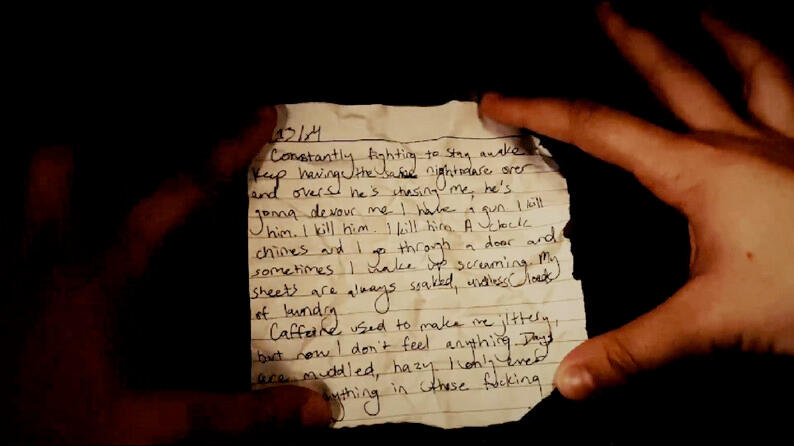 Constantly fighting to stay awake
Keep having the same nightmare over
and over. he's chasing me, he's
gonna devour me I have a gun. I kill
him. I kill him. I kill him A clock
chimes and I go through a door and
sometimes I wake up screaming. My
sheets are always soaked, endless loads
of laundry
Caffeine used to make me jittery,
but now I don't feel anything. Days
are muddled, hazy. I only ever
anything in those fucking